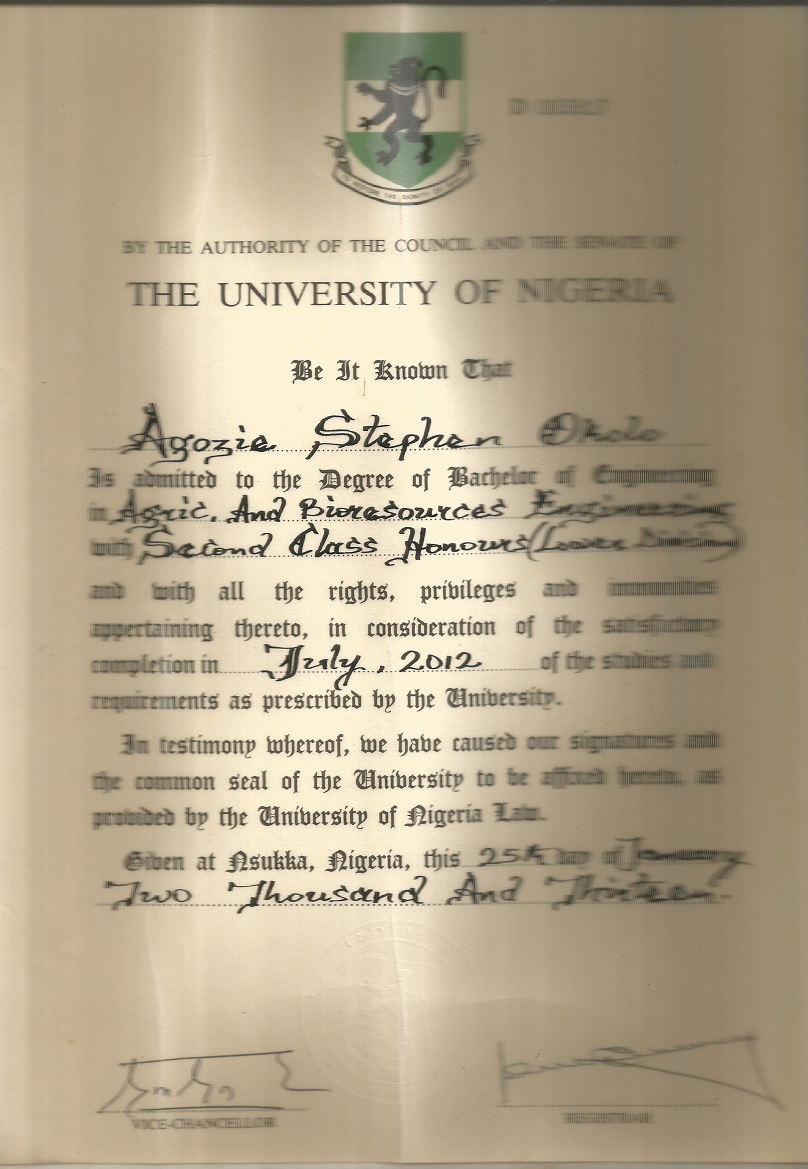 TO RESTORE THE DIGNITY OF MAN
BY THE AUTHORITY OF THE COUNCIL AND THE SENATE OF
THE UNIVERSITY OF NIGERIA
Be It Known That
Agozie Stephen Okolo
Is admitted to the Degree of Bachelor of Engineering
in Agric. And Bioresources Engineering
with Second Class Honours (Lower Division)
and with all the rights, privileges and immunities
appertaining thereto, in consideration of the satisfactory
completion in July, 2012 of the studies and
requirements as prescribed by the University.
In testimony whereof, we have caused our signatures and
the common seal of the University to be affixed hereto, as
provided by the University of Nigeria Law.
Given at Nsukka, Nigeria, this 25th day of January
Two Thousand And Thirteen.
VICE-CHANCELLOR
REGISTRAR